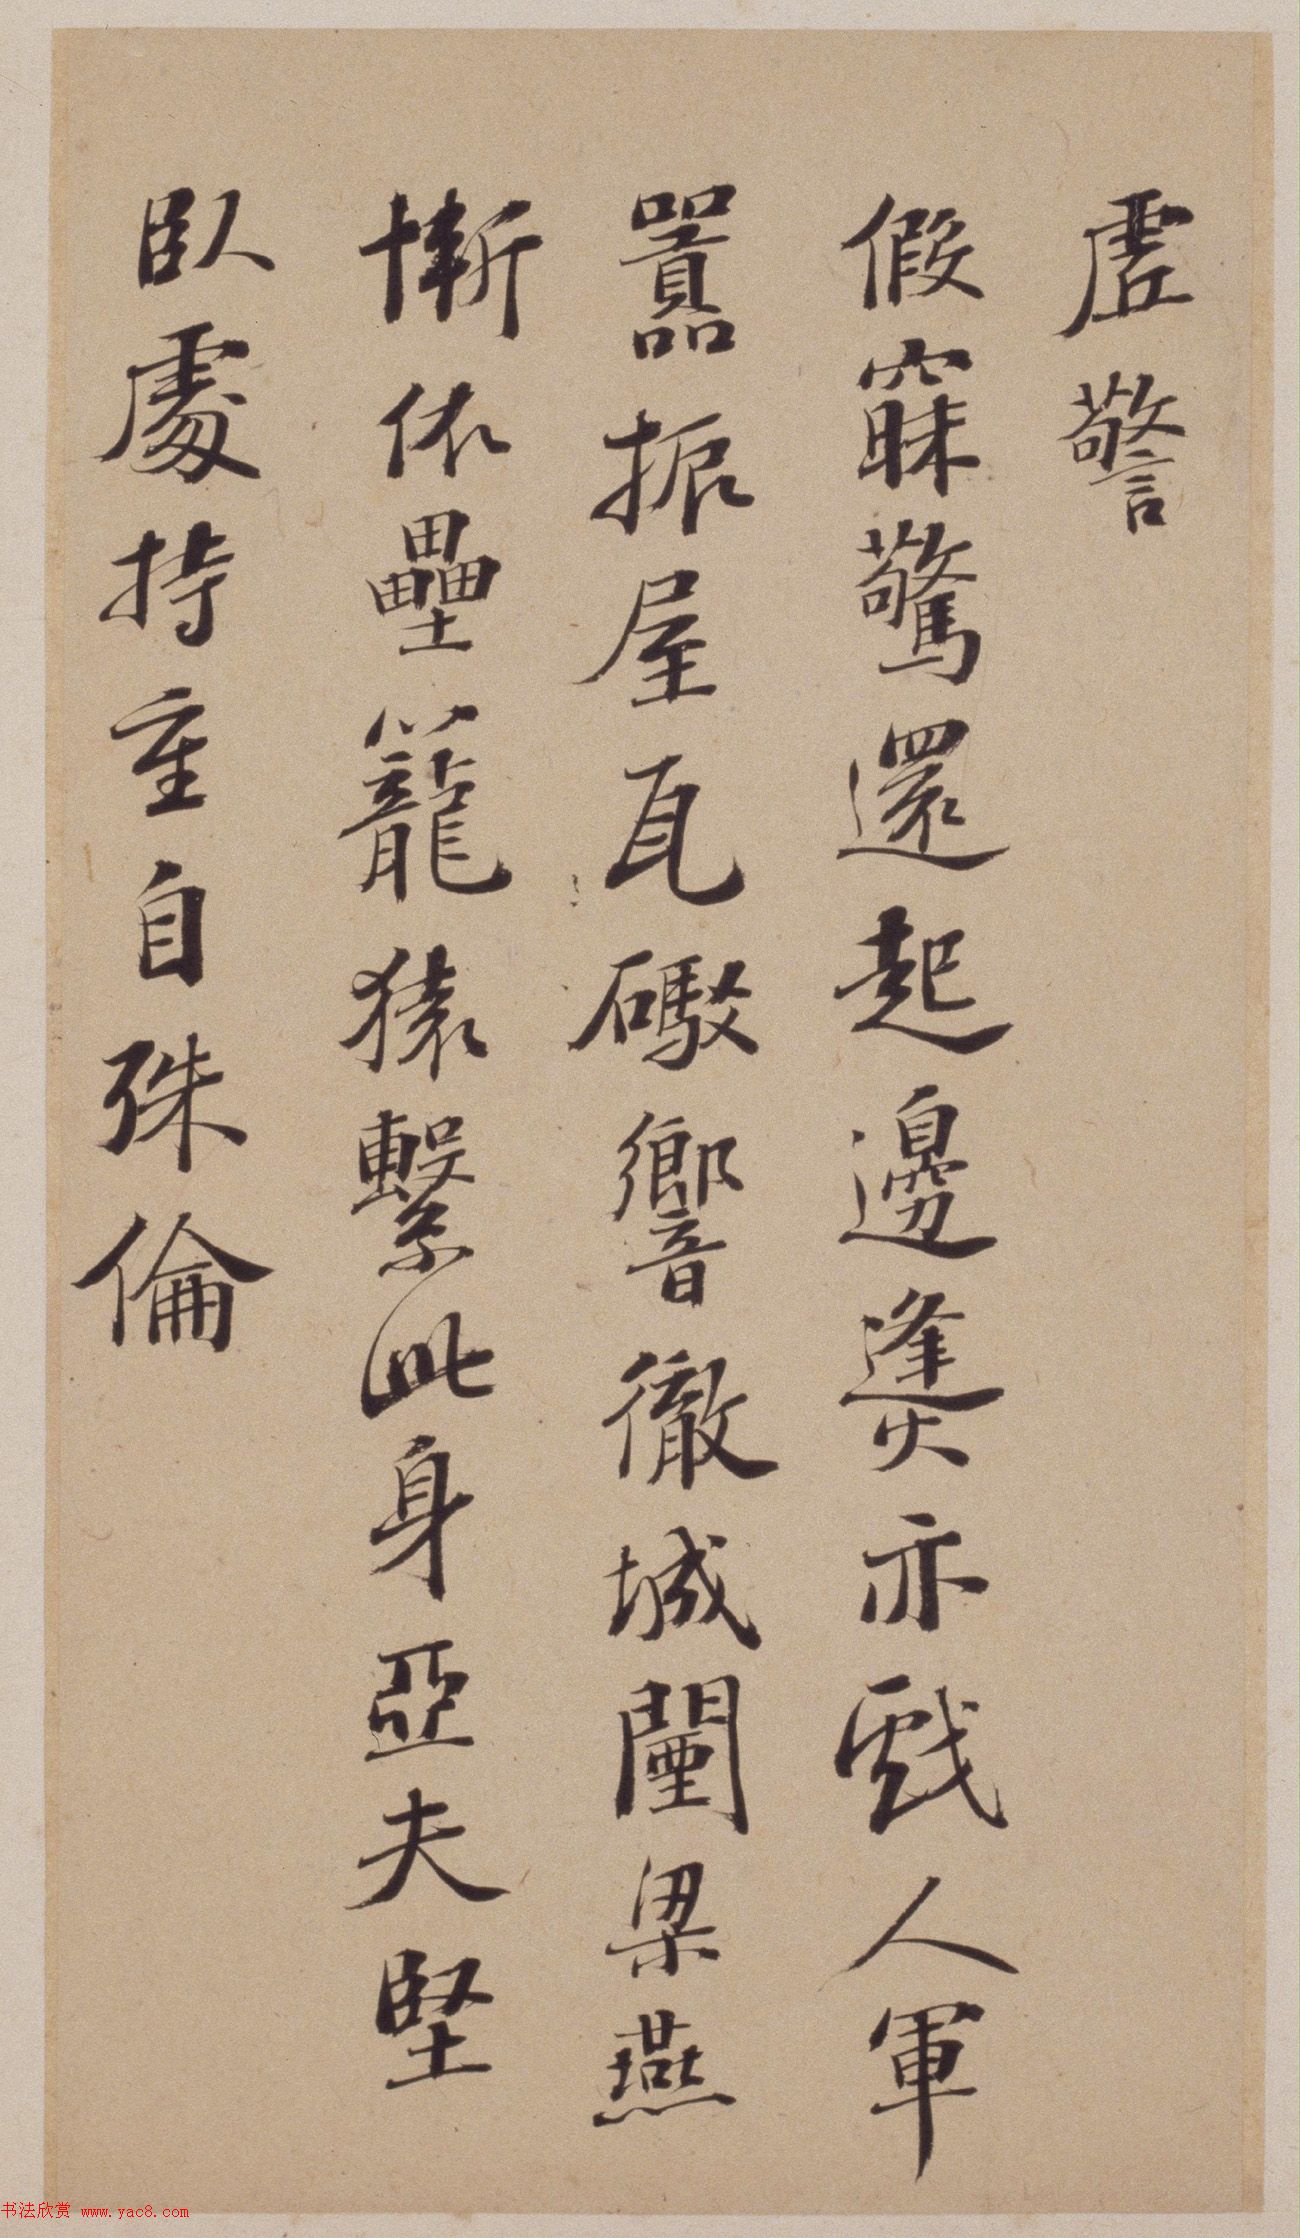 虛警
假寐驚還起邊燧亦戲人軍
囂振屋瓦礮響徹城闉梁燕
慚依壘籠猿繫此身亞夫堅
臥處持重自殊倫
书法欣赏 www.yac8.com